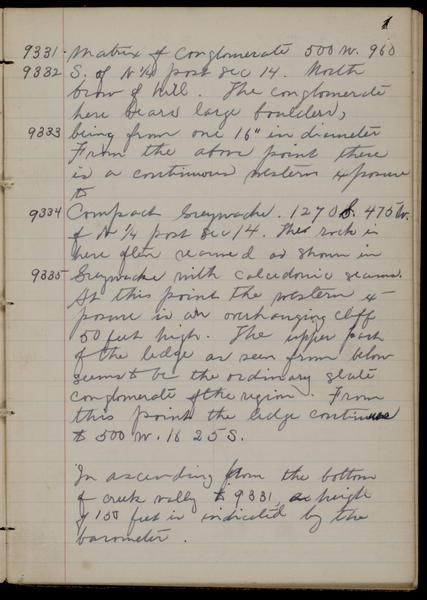 1
9331. Matrix of Conglomerate 500 W. 960
9332 S. of N 1/4 post Sec 14. North
brow of hill. The conglomerate
here bears large boulders,
9333 being from one 16" in diameter
From the above point there
is a continuous western exposure
to
9334 Compact Greywacke. 1270 S. 475 W.
of N 1/4 post Sec 14. The rock is
here often seamed as shown in
9335 Greywacke with calcedonic seams.
At this point the western ex-
posure is an overhanging cliff
50 feet high. The upper part
of the ledge as seen from below
seems to be the ordinary slate
conglomerate of the region. From
this point the ledge continues
to 500 W. 1625 S.
In ascending from the bottom
of creek vally to 9331, a height
of 150 feet is indicated by the
barometer.